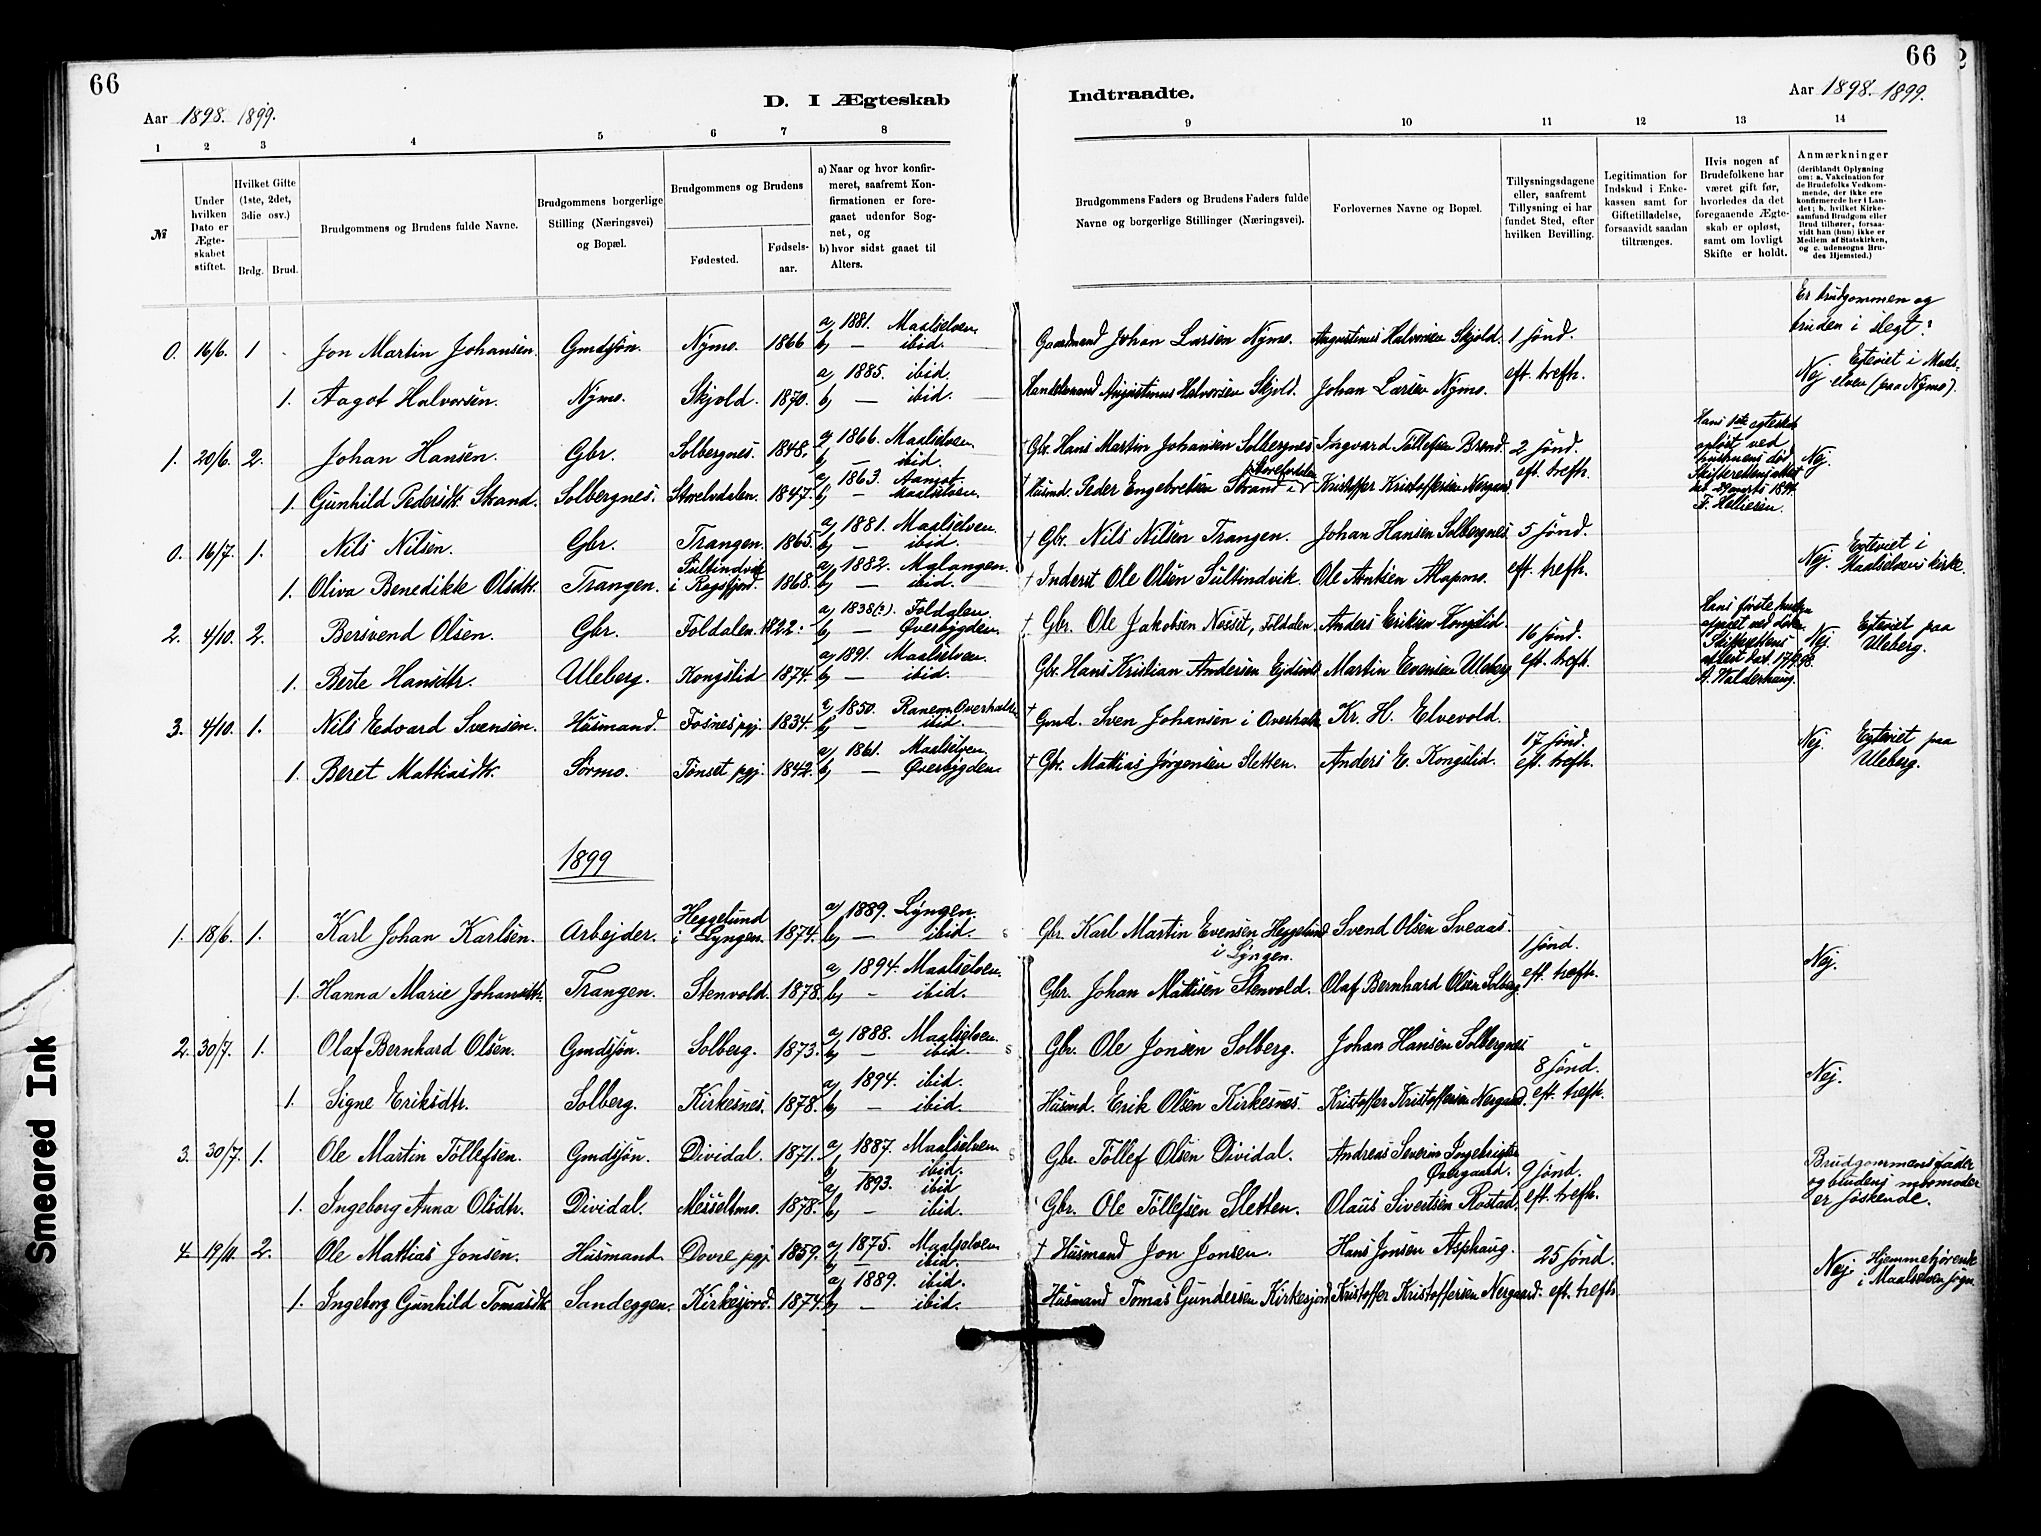 66
Aar 1898. 1899.
D. I Ægteskab
1 2 3 4 5 6 7 8
№
Under hvilken Dato er Ægteskabet stiftet.
Hvilket Gifte (1ste, 2det, 3die osv.)
Brdg. Brud.
Brudgommens og Brudens fulde Navne.
Brudgommens borgerlige Stilling (Næringsvei) og Bopæl.
Brudgommens og Brudens
Fødested. Fødselsaar.
a) Naar og hvor konfirmeret, saafremt Konfirmationen er foregaaet udenfor Sognet, og
b) hvor sidst gaaet til Alters.
0. 16/6. 1 Jon Martin Johansen. Gmdsjøn. Nymo. 1866 a) 1881. Maalselven. b) — ibid.
1. Aagot Halvorsen. Nymo. Skjold. 1870. a) 1885. ibid. b) — ibid.
1. 20/6. 2. Johan Hansen. Gbr. Solbergnes. 1848. a) 1866. Maalselven b) — ibid.
1. Gunhild Pedersdtr. Strand. Solbergnes. Storelvdalen. 1847. a) 1863. Aamot. b) — Maalselven.
0. 16/7. 1. Nils Nilsen. Gbr. Trangen. 1865. a) 1881. Maalselven. b) — ibid.
1. Oliva Benedikke Olsdtr. Trangen. Sultindvik i Rossfjord. 1868. a) 1882. Malangen. b) — ibid.
2. 4/10. 2. Bersvend Olsen. Gbr. Foldalen. 1822. a) 1838(?). Foldalen b) — Øverbygden.
1. Berte Hansdtr. Uleberg. Kongslid 1874. a) 1891. Maalselven. b) — ibid.
3. 4/10. 1. Nils Edvard Svensen. Husmand. Fosnes pgj. 1834. a) 1850. Ranem, Overhalla b) — ibid.
1. Beret Mathiasdtr. Sørmo. Tønset pgj. 1842. a) 1861. Maalselven b) — Øverbygden.
1899
1. 18/6. 1. Karl Johan Karlsen. Arbejder. Heggelund i Lyngen. 1874. a) 1889. Lyngen. b) — ibid.
1. Hanna Marie Johansdtr. Trangen. Stenvold. 1878. a) 1894. Maalselven. b) — ibid.
2. 30/7. 1. Olaf Bernhard Olsen. Gmdsjøn. Solberg. 1873. a) 1888. Maalselven. b) — ibid.
1. Signe Eriksdtr. Solberg. Kirkesnes. 1878. a) 1894. ibid. b) — ibid.
3. 30/7. 1. Ole Martin Tollefsen. Gmdsjøn. Dividal. 1871. a) 1887. Maalselven. b) — ibid.
1. Ingeborg Anna Olsdtr. Dividal. Messeltmo. 1878. a) 1893. ibid b) — ibid.
4. 19/11. 2. Ole Mathias Jonsen. Husmand. Dovre pgj. 1859. a) 1875. Maalselven. b) — ibid.
1. Ingeborg Gunhild Tomasdtr. Sandeggen. Kirkesjord. 1874. a) 1889. ibid. b) — ibid.
Smeared Ink
66
Indtraadte.
Aar 1898. 1899.
9 10 11 12 13 14
Brudgommens Faders og Brudens Faders fulde Navne og borgerlige Stillinger (Næringsvei).
Forlovernes Navne og Bopæl.
Tillysningsdagene eller, saafremt Tillysning ei har fundet Sted, efter hvilken Bevilling.
Legitimation for Indskud i Enkekassen samt for Giftetilladelse, forsaavidt saadan tiltrænges.
Hvis nogen af Brudefolkene har været gift før, hvorledes da det foregaaende Ægteskab er opløst, samt om lovligt Skifte er holdt.
Anmærkninger
(deriblandt Oplysning om: a. Vakcination for de Brudefolks Vedkommende, der ikke ere konfirmerede her i Landet; b. hvilket Kirkesamfund Brudgom eller Brud tilhører, forsaavidt han (hun) ikke er Medlem af Statskirken, og c. udensogns Brudes Hjemsted.)
Er brudgommen og bruden i slegt?
Gaardmand Johan Larsen Nymo. Augustinus Halvorsen Skjold. 1 sønd. eft. trefh.
Handelsmand Augustinus Halvorsen Skjold. Johan Larsen Nymo. Nej Egteviet i Maalselven (paa Nymo).
† Gbr. Hans Martin Johansen Solbergnes Ingvard Tollefsen Brend. 2 sønd. eft. trefh. Hans 1ste egteskab opløst ved hustruens død Nej.
† Husmd. Peder Engebretsen Strand i Storelvdalen Kristoffer Kristoffersen Nergaard
† Gbr. Nils Nilsen Trangen. Johan Hansen Solbergnes 5 sønd. eft. trefh.
† Inderst Ole Olsen Sultindvik. Ole Antsen Alapmo. Nej. Egteviet i Maalselvens kirke.
† Gbr. Ole Jakobsen Foldalen. Anders Eriksen Kongslid. 16 sønd. eft. trefh. Hans første hustru Nej. Egteviet paa Uleberg.
Gbr. Hans Kristian Andersen Martin Evensen Uleberg
† Gmd. Sven Johansen i Overhalla Kr. H. Elvevold. 17 sønd. eft. trefh. Nej. Egteviet paa Uleberg.
† Gbr. Mathias Jørgensen Sletten. Anders E. Kongslid.
Gbr. Karl Martin Evensen Heggelund i Lyngen. Svend Olsen Sveaas. 1 sønd. eft. trefh. Nej.
Gbr. Johan Mattisen Stenvold. Olaf Bernhard Olsen Solberg.
Gbr. Ole Jonsen Solberg. Johan Hansen Solbergnes. 8 sønd. eft. trefh. Nej.
Husmd. Erik Olsen Kirkesnes. Kristoffer Kristoffersen Nergaard.
Gbr. Tollef Olsen Dividal. Andreas Severin Ingebrigtsen Øvergaard. 9 sønd. eft. trefh. Brudgommens fader og brudens mormoder er søskende.
Gbr. Ole Tollefsen Sletten. Olaus Sivertsen Rostad.
† Husmand Jon Jonsen. Hans Jonsen Asphaug. 25 sønd. eft. trefh. Nej. Hjemmehørende i Maalselven sogn
Husmand Tomas Gundersen Kirkesjord Kristoffer Kristoffersen Nergaard.